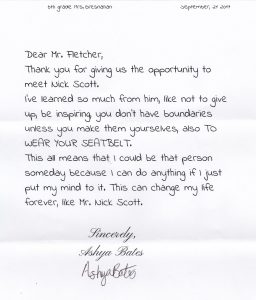 6th grade Mrs. Bresnahan September, 27 2019
Dear Mr. Fletcher,
Thank you for giving us the opportunity to
meet Nick Scott.
I've learned so much from him, like not to give
up, be inspiring, you don't have boundaries
unless you make them yourselves, also TO
WEAR YOUR SEATBELT.
This all means that I could be that person
someday because I can do anything if I just
put my mind to it. This can change my life
forever, like Mr. Nick Scott.
Sincerely,
Ashya Bates
Ashya Bates